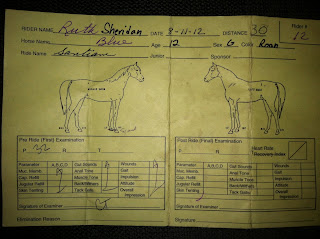 RIDER NAME Ruth Sheridan DATE 8-11-12 DISTANCE 30 Rider #
Horse Name Blue Age 12 Sex G Color Roan 62
Ride Name Santiam Junior Sponsor
Pre Ride (Final) Examination
Post Ride (Final) Examination
P R T
P R T Heart Rate Recovery Index
Parameter A,B,C,D Gut Sounds Wounds
Parameter A,B,C,D Gut Sounds Wounds
Muc. Memb. Anal Tone Gait
Muc. Memb. Anal Tone Gait
Cap. Refill Muscle Tone Impulsion
Cap. Refill Muscle Tone Impulsion
Jugular Refill Back/Withers Attitude
Jugular Refill Back/Withers Attitude
Skin Tenting Tack Galls Overall Impression
Skin Tenting Tack Galls Overall Impression
Signature of Examiner
Signature of Examiner
Elimination Reason:
Signature: